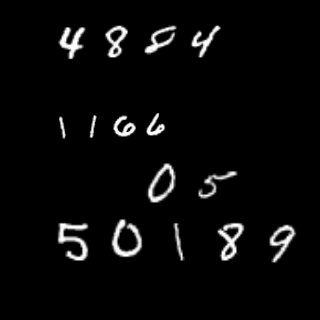 4884
1166
05
50189